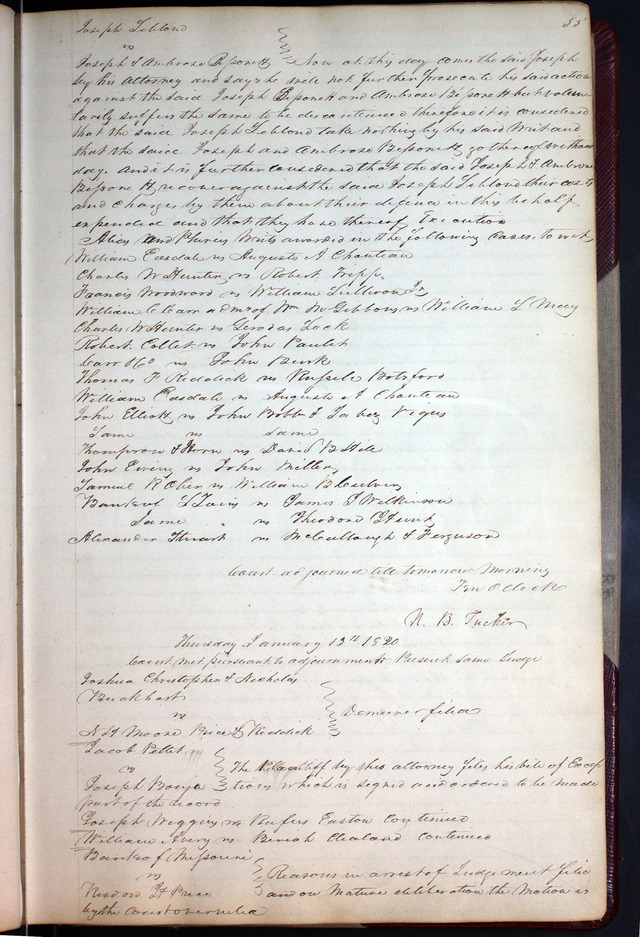 55
Joseph Leblond
vs
Joseph & Ambrose Bissonett Now at this day comes the said Joseph
by his Attorney and says he will not further prosecute his said action
against the said Joseph Bissonett and Ambrose Bissonett but volun
tarily suffers the same to be discontinued therefore it is considered
that the said Joseph Leblond take nothing by his said Writ and
that the said Joseph and Ambrose Bissonett go thereof without
day. And it is further considered that the said Joseph & Ambrose
Bissonett, recover against the said Joseph Leblond their costs
and charges by them about their defence in this behalf
expended and that they have thereof Execution
Alias and Pluries Writs awarded in the following cases, to wit,
William Easdale vs Auguste A Chouteau
Charles W Hunter vs Robert
Francis Woodward vs William Sullivan Jr,
William C Carr admr of Wm M Gibbons vs William L May
Charles W Hunter vs Lock
Robert Collet vs John Paulet
Carr & Co vs John Burk
Thomas F Reddick vs Russell Botsford
William Easdale vs Auguste A Chouteau
John Elliott vs John Bobb & Jabez Vigus
Same vs same
Thompson & Horn vs David B Hill
John Ewing vs John Miller,
Samuel R Ober vs William B Culver,
Bank of St Louis vs James P Wilkinson
Same vs Theodore Hunt,
Alexander Stuart vs McCullough & Ferguson
Court adjourned till tomorrow Morning
Ten OClock
N. B. Tucker
Thursday January 13th 1820
Court met pursuant to adjournment Present same Judge
Joshua Christopher & Nicholas
Burkhart
vs Demurrer filed
N H Moore Price & Reddick
Jacob Pellet
vs The Plaintiff by his attorney files his bill of Excep
Joseph tions which is signed and ordered to be made
part of the record
Joseph Wiggins vs Rufus Easton continued
William Avery vs Clealand continued
Bank of Missouri
vs Reasons in arrest of Judgement filed
Risdon H Price and on Mature deliberation the Motion is
by the court overruled